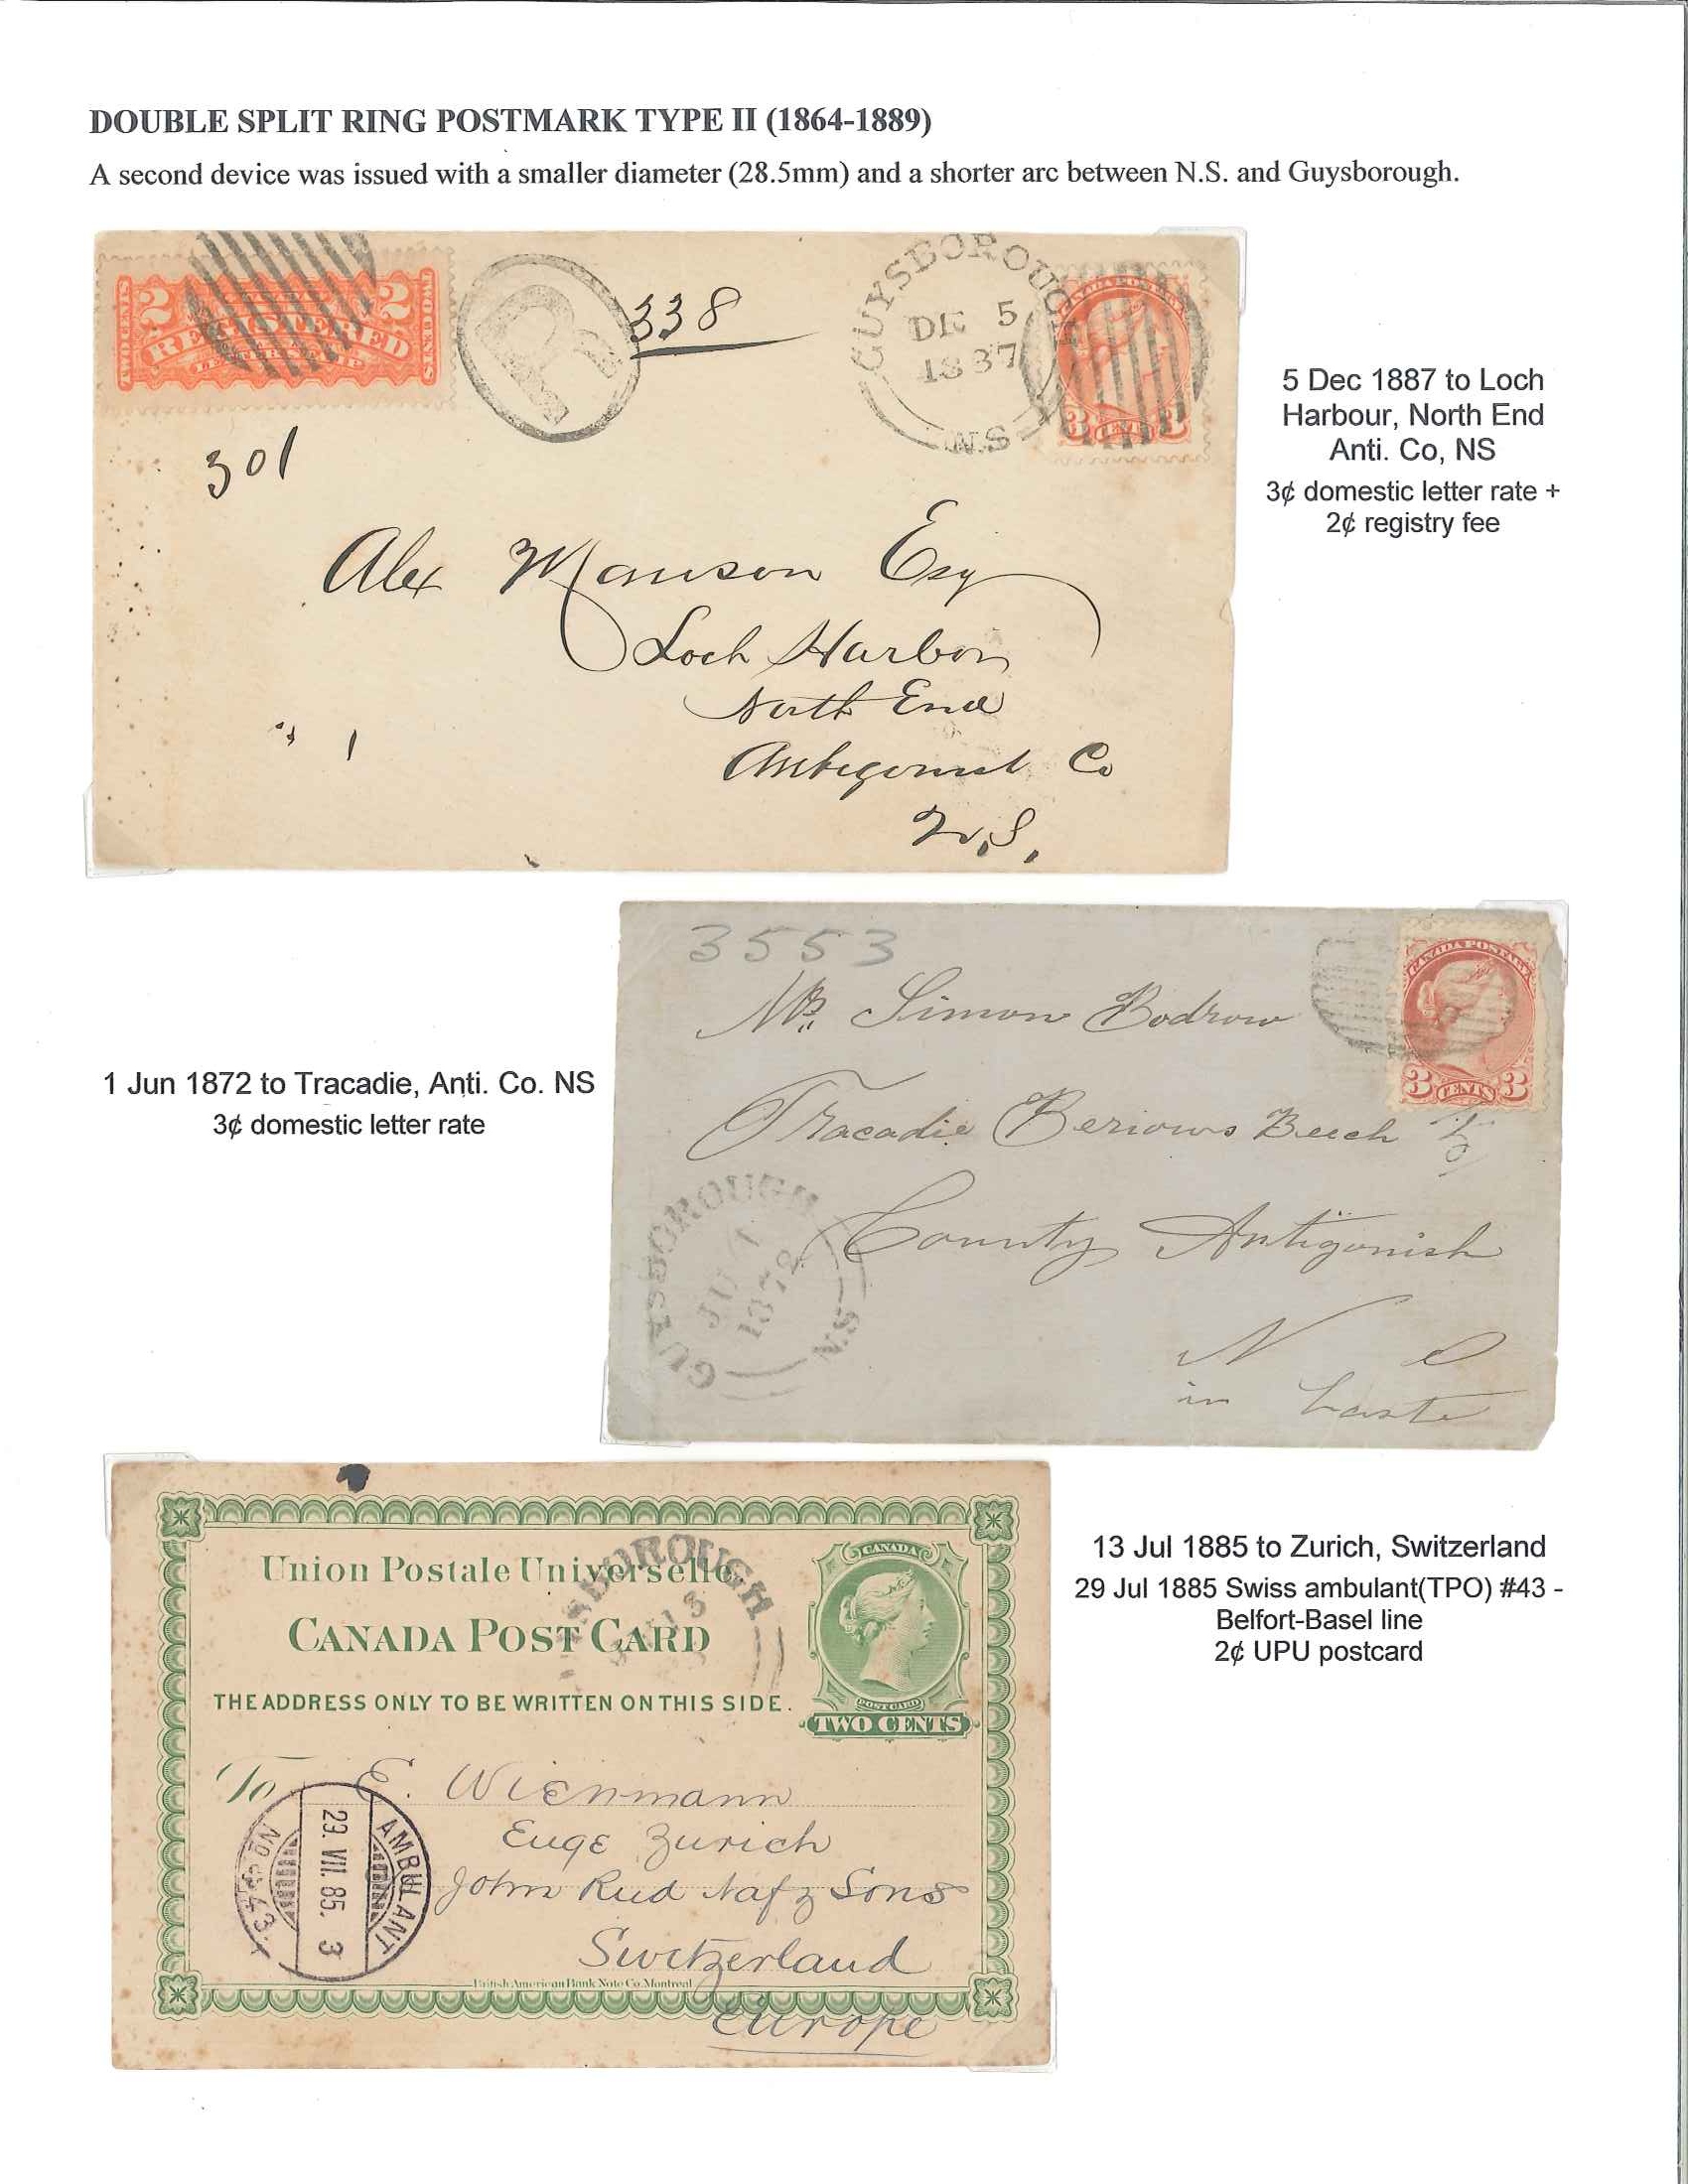 DOUBLE SPLIT RING POSTMARK TYPE II (1864-1889)
A second device was issued with a smaller diameter (28.5mm) and a shorter arc between N.S. and Guysborough.
TWO CENTS 2 REGISTERED 2 TWO CENTS
LETTER STAMP
R
338
GUYSBOROUGH
DE 5
1887
N.S
CANADA POSTAGE
3 CENTS 3
301
Alex Manson Esq
Loch Harbour
North End
Antigonish Co
N.S.
1
5 Dec 1887 to Loch
Harbour, North End
Anti. Co, NS
3¢ domestic letter rate +
2¢ registry fee
3553
CANADA POSTAGE
3 CENTS 3
Mr. Simon Bodrow
Tracadie Beriows Beech
County Antigonish
N S
in haste
GUYSBOROUGH
JU 1
1872
N.S
1 Jun 1872 to Tracadie, Anti. Co. NS
3¢ domestic letter rate
Union Postale Universelle
CANADA POST CARD
THE ADDRESS ONLY TO BE WRITTEN ON THIS SIDE.
SBOROUGH
13
CANADA
POST CARD
TWO CENTS
To E. Wienmann
Euge Zurich
John Rud Naf z Sons
Switzerland
Europe
AMBULANT
29. VII. 85. 3
No 43.
British American Bank Note Co. Montreal
13 Jul 1885 to Zurich, Switzerland
29 Jul 1885 Swiss ambulant(TPO) #43 -
Belfort-Basel line
2¢ UPU postcard